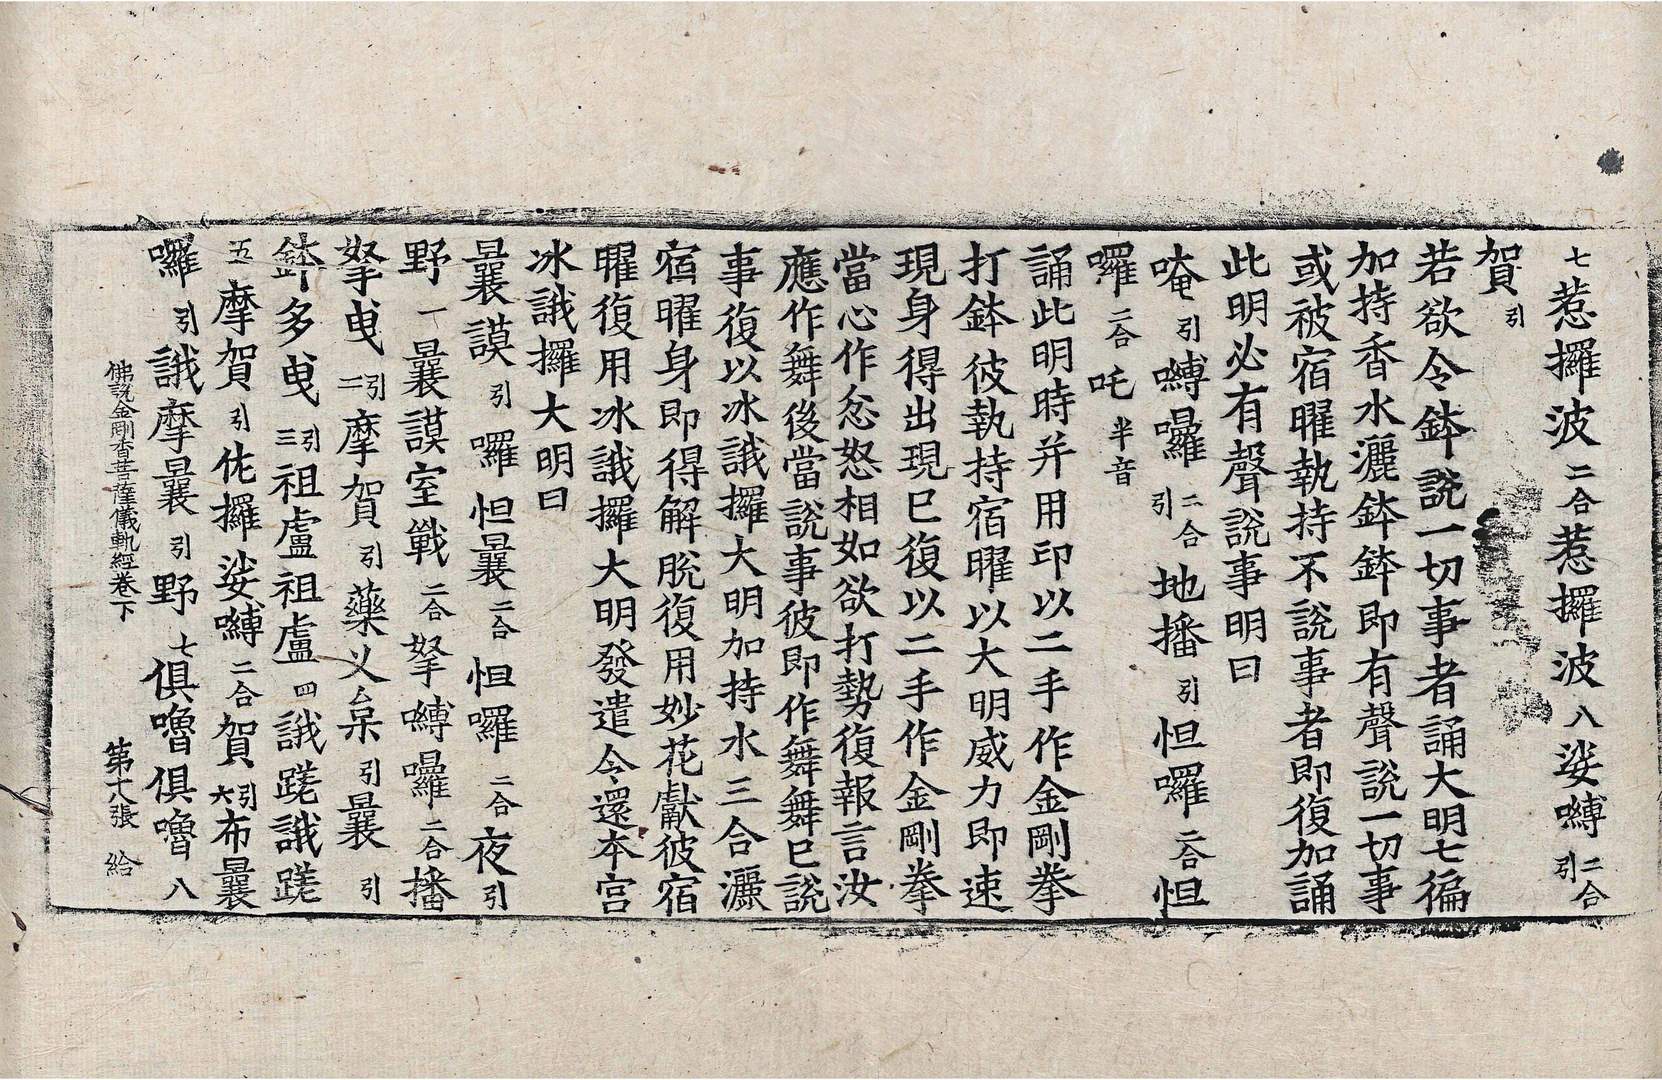 七惹攞波二合惹攞波八娑嚩二合引
賀引
若欲令鉢說一切事者誦大明七徧
加持香水灑鉢鉢即有聲說一切事
或被宿曜執持不說事者即復加誦
此明必有聲說事明曰
唵引嚩囉二合引地播引怛囉二合怛
囉二合吒半音
誦此明時并用印以二手作金剛拳
打鉢彼執持宿曜以大明威力即速
現身得出現已復以二手作金剛拳
當心作忿怒相如欲打勢復報言汝
應作舞後當說事彼即作舞舞已說
事復以冰誐攞大明加持水三合灑
宿曜身即得解脫復用妙花獻彼宿
曜復用冰誐攞大明發遣令還本宮
冰誐攞大明曰
曩謨引囉怛曩二合怛囉二合夜引
野一曩謨室戰二合拏嚩囉二合播
拏曳引二摩賀引藥乂枲引曩引
鉢多曳引三祖盧祖盧四誐蹉誐蹉
五摩賀引佐攞娑嚩二合賀引六布曩
囉引誐摩曩引野七俱嚕俱嚕八
佛說金剛香菩薩儀軌經卷下 第十八張 給